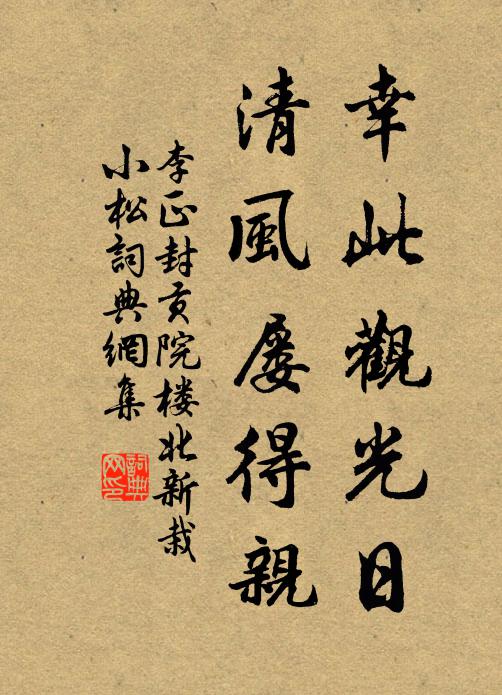 幸此觀光日
清風屡得親
李正封贡院楼北新栽
小松詞典網集
詞典
网印